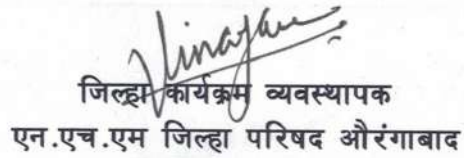 Vinayak
जिल्हा कार्यक्रम व्यवस्थापक
एन.एच.एम जिल्हा परिषद औरंगाबाद